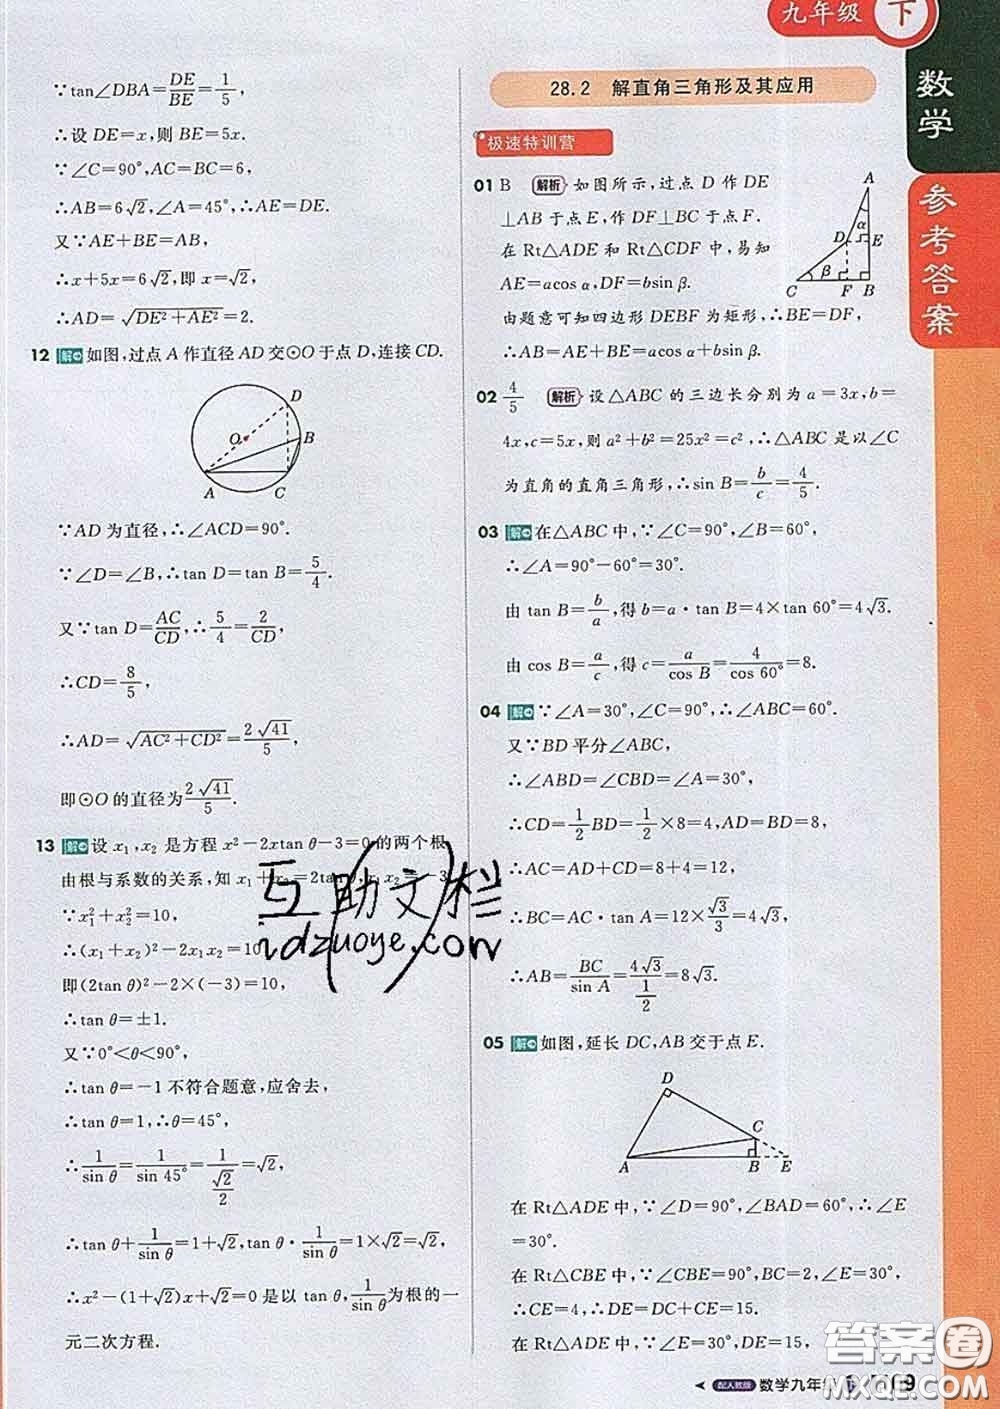 九年级 下
数学
参考答案
∵tan∠DBA=DE/BE=1/5,
∴设 DE=x,则 BE=5x.
∵∠C=90°,AC=BC=6,
∴AB=6√2,∠A=45°,∴AE=DE.
又∵AE+BE=AB,
∴x+5x=6√2,即 x=√2,
∴AD=√(DE²+AE²)=2.
12 解 如图,过点 A 作直径 AD 交⊙O 于点 D,连接 CD.
D
O
B
A
C
∵AD 为直径,∴∠ACD=90°.
∵∠D=∠B,∴tan D=tan B=5/4.
又∵tan D=AC/CD,∴5/4=2/CD,
∴CD=8/5,
∴AD=√(AC²+CD²)=2√41/5,
即⊙O 的直径为2√41/5.
13 解 设 x₁,x₂ 是方程 x²-2xtan θ-3=0 的两个根,
由根与系数的关系,知 x₁+x₂=2tan θ,x₁x₂=-3.
∵x₁²+x₂²=10,
∴(x₁+x₂)²-2x₁x₂=10,
即(2tan θ)²-2×(-3)=10,
∴tan θ=±1.
又∵0°<θ<90°,
∴tan θ=-1 不符合题意,应舍去,
∴tan θ=1,∴θ=45°,
∴1/sin θ=1/sin 45°=1/(√2/2)=√2,
∴tan θ+1/sin θ=1+√2,tan θ·1/sin θ=1×√2=√2,
∴x²-(1+√2)x+√2=0 是以 tan θ,1/sin θ为根的一
元二次方程.
28.2 解直角三角形及其应用
极速特训营
01 B 解析 如图所示,过点 D 作 DE
⊥AB 于点 E,作 DF⊥BC 于点 F.
在 Rt△ADE 和 Rt△CDF 中,易知
AE=acos α,DF=bsin β.
由题意可知四边形 DEBF 为矩形,∴BE=DF,
∴AB=AE+BE=acos α+bsin β.
A
α
D
E
β
C
F
B
02 4/5 解析 设△ABC 的三边长分别为 a=3x,b=
4x,c=5x,则 a²+b²=25x²=c²,∴△ABC 是以∠C
为直角的直角三角形,∴sin B=b/c=4/5.
03 解 在△ABC 中,∵∠C=90°,∠B=60°,
∴∠A=90°-60°=30°.
由 tan B=b/a,得 b=a·tan B=4×tan 60°=4√3.
由 cos B=a/c,得 c=a/cos B=4/cos 60°=8.
04 解 ∵∠A=30°,∠C=90°,∴∠ABC=60°.
又∵BD 平分∠ABC,
∴∠ABD=∠CBD=∠A=30°,
∴CD=1/2BD=1/2×8=4,AD=BD=8,
∴AC=AD+CD=8+4=12,
∴BC=AC·tan A=12×√3/3=4√3,
∴AB=BC/sin A=4√3/(1/2)=8√3.
05 解 如图,延长 DC,AB 交于点 E.
D
C
A
B
E
在 Rt△ADE 中,∵∠D=90°,∠BAD=60°,∴∠E
=30°.
在 Rt△CBE 中,∵∠CBE=90°,BC=2,∠E=30°,
∴CE=4,∴DE=DC+CE=15.
在 Rt△ADE 中,∵∠E=30°,DE=15,
互助文栏
idzuoye.com
配人教版 数学九年级
9
答案圈
MXQE.COM